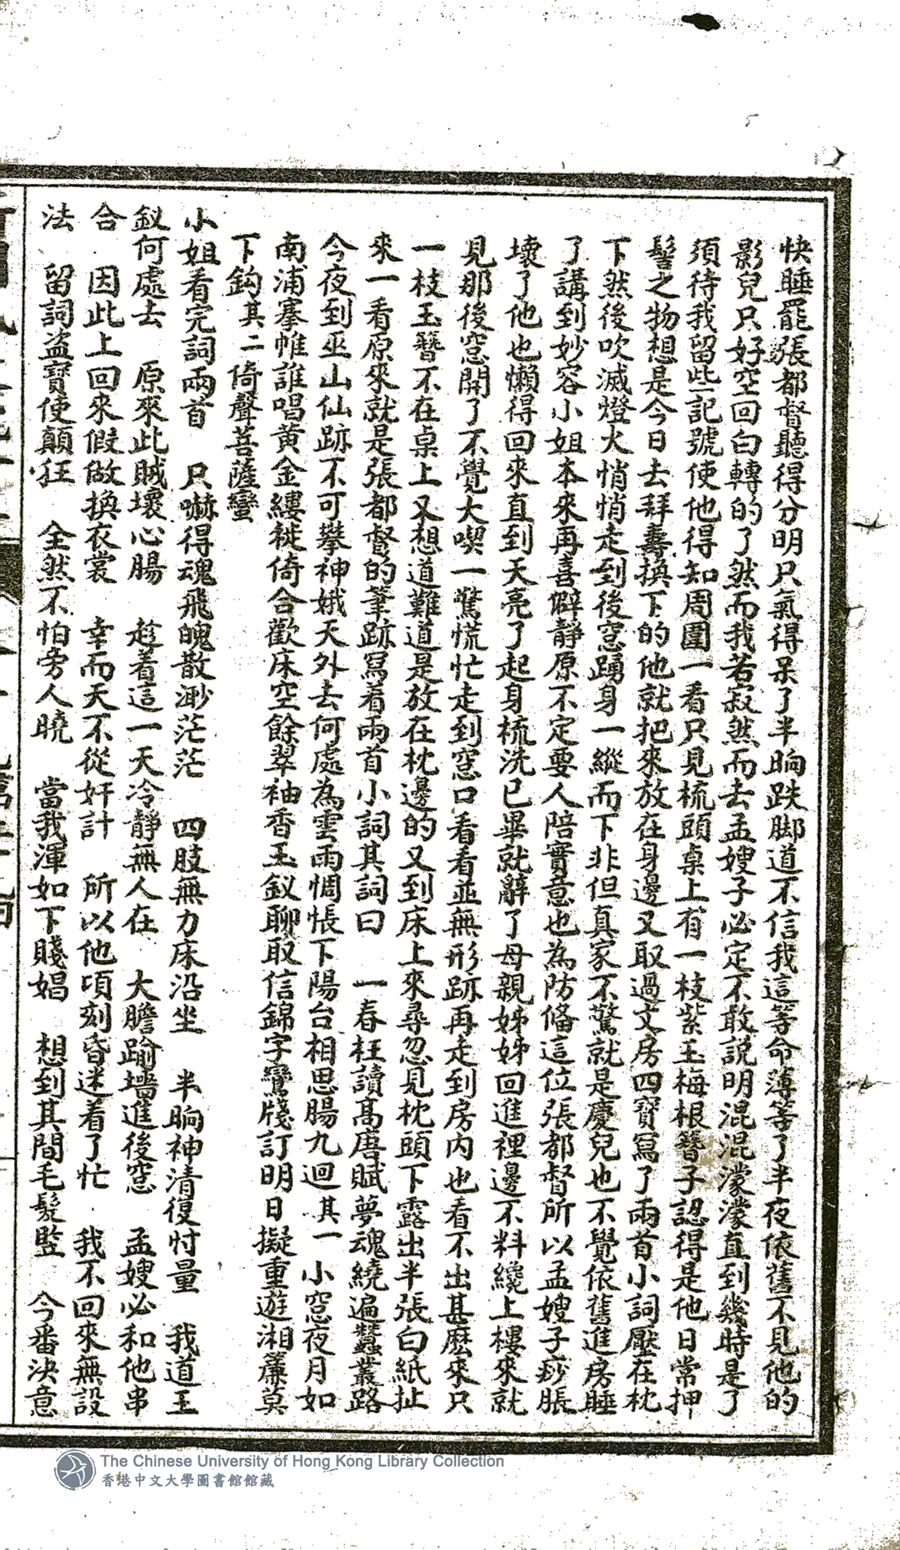 快睡罷張都督聽得分明只氣得呆了半晌跌脚道不信我這等命薄等了半夜依舊不見他的
影兒只好空回白轉的了然而我若寂然而去孟嫂子必定不敢說明混混濛濛直到幾時是了
須待我留些記號使他得知周圍一看只見梳頭桌上有一枝紫玉梅根簪子認得是他日常押
髻之物想是今日去拜壽換下的他就把來放在身邊又取過文房四寶寫了兩首小詞壓在枕
下然後吹滅燈火悄悄走到後窓踴身一縱而下非但真家不驚就是慶兒也不覺依舊進房睡
了講到妙容小姐本來再喜僻静原不定要人陪實意也為防俻這位張都督所以孟嫂子痧脹
壞了他也懶得回來直到天亮了起身梳洗已畢就辭了母親姊姊回進裡邊不料纔上樓來就
見那後窓開了不覺大喫一驚慌忙走到窓口看看並無形跡再走到房内也看不出甚麽來只
一枝玉簪不在桌上又想道難道是放在枕邊的又到床上來尋忽見枕頭下露出半張白紙扯
來一看原來就是張都督的筆跡寫着兩首小詞其詞曰　一春枉讀高唐賦夢魂繞遍蠶叢路
今夜到巫山仙跡不可攀神娥天外去何處為雲雨惆悵下陽台相思腸九迴其一　小窓夜月如
南浦搴帷誰唱黄金縷徙倚合歡床空餘翠袖香玉釵聊取信錦字鸞牋訂明日擬重遊湘簾莫
下鈎其二倚聲菩薩蠻
小姐看完詞兩首　只嚇得魂飛魄散渺茫茫　四肢無力床沿坐　半晌神清復忖量　我道玉
釵何處去　原來此賊壞心腸　趂着這一天冷靜無人在　大膽踰墻進後窓　孟嫂必和他串
合　因此上回來假做換衣裳　幸而天不從奸計　所以他頃刻昏迷着了忙　我不回來無設
法　留詞盗寶使顛狂　全然不怕旁人曉　當我渾如下賤娼　想到其間毛髮豎　今番決意
The Chinese University of Hong Kong Library Collection
香港中文大學圖書館館藏